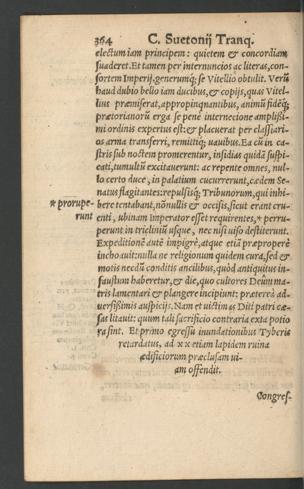 364 C. Suetonij Tranq.
electum iam principem: quietem & concordiam
suaderet. Et tamen per internuncios ac literas, con-
sortem Imperij, generumq; se Vitellio obtulit. Verũ
haud dubio bello iam ducibus, & copijs, quas Vitel-
lius præmiserat, appropinquantibus, animũ fidéq;
prætorianorũ erga se penè internecione amplißi-
mi ordinis expertus est: & placuerat per claßiari-
os arma transferri, remittiq; nauibus. Ea cũ in ca-
stris sub noctem promerentur, insidias quidã suspi-
cati, tumultũ excitauerunt: ac repente omnes, nul-
lo certo duce, in palatium cucurrerunt, cædem Se-
natus flagitantes: repulsisq; Tribunorum, qui inhi-
bere tentabant, nõnullis & occisis, sicut erant cru-
enti, ubinam Imperator esset requirentes, * perru-
* prorupe-
runt
perunt in triclinũ usque, nec nisi uiso destiterunt.
Expeditionẽ autẽ impigrè, atque etiã præproperè
inchoauit: nulla ne religionum quidem cura, sed &
motis necdũ conditis ancilibus, quòd antiquitus in-
faustum haberetur, & die, quo cultores Deûm ma-
tris lamentari & plangere incipiunt: prætereà ad-
uersißimis auspicijs. Nam et uictima Diti patri cæ-
sa litauit: quum tali sacrificio contraria exta potio
ra sint. Et primo egressu inundationibus Tyberis
retardatus, ad xx etiam lapidem ruina
ædificiorum præclusam ui-
am offendit.
Congres-